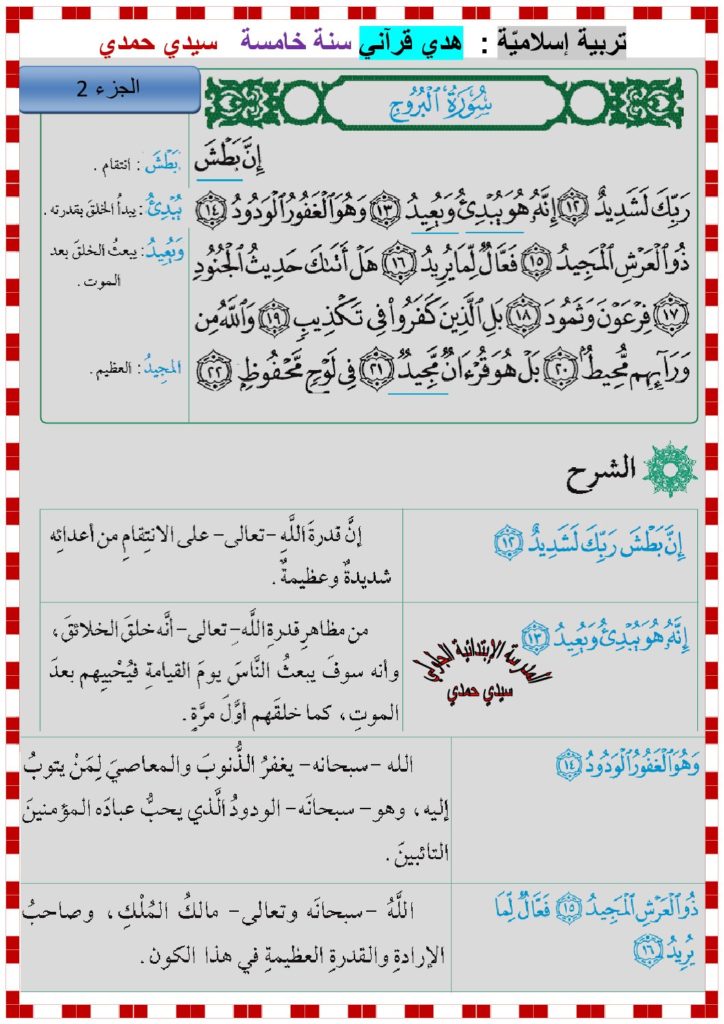 تربية إسلاميّة : هدي قرآني سنة خامسة سيدي حمدي
الجزء 2
سُورَةُ الْبُرُوجِ
إِنَّ بَطْشَ
رَبِّكَ لَشَدِيدٌ ١٢ إِنَّهُ هُوَ يُبْدِئُ وَيُعِيدُ ١٣ وَهُوَ الْغَفُورُ الْوَدُودُ ١٤
ذُو الْعَرْشِ الْمَجِيدُ ١٥ فَعَّالٌ لِّمَا يُرِيدُ ١٦ هَلْ أَتَىٰكَ حَدِيثُ الْجُنُودِ
١٧ فِرْعَوْنَ وَثَمُودَ ١٨ بَلِ الَّذِينَ كَفَرُوا فِي تَكْذِيبٍ ١٩ وَاللَّهُ مِن
وَرَآئِهِم مُّحِيطٌ ٢٠ بَلْ هُوَ قُرْءَانٌ مَّجِيدٌ ٢١ فِي لَوْحٍ مَّحْفُوظٍ ٢٢
بَطْشَ : انتقام .
يُبْدِئُ : يبدأُ الخلقَ بقدرته .
وَيُعِيدُ : يبعثُ الخلقَ بعد
الموت .
المَجِيدُ : العظيم .
الشرح
إِنَّ بَطْشَ رَبِّكَ لَشَدِيدٌ ١٢
إنَّ قدرةَ اللَّهِ -تعالى- على الانتِقامِ من أعدائِه
شديدةٌ وعظيمةٌ .
إِنَّهُ هُوَ يُبْدِئُ وَيُعِيدُ ١٣
من مظاهرِ قدرةِ اللَّه- تعالى- أنَّه خلقَ الخلائقَ،
وأنه سوفَ يبعثُ النَّاسَ يومَ القيامةِ فيُحْيِيهم بعدَ
الموتِ، كما خلقَهم أوَّلَ مرَّةٍ.
المدرسة الإبتدائية الخزامي
سيدي حمدي
وَهُوَ الْغَفُورُ الْوَدُودُ ١٤
الله -سبحانه- يغفرُ الذُّنوبَ والمعاصيَ لِمَنْ يتوبُ
إليه، وهو- سبحانَه- الودودُ الَّذي يحبُّ عبادَه المؤمنينَ
التائبينَ .
ذُو الْعَرْشِ الْمَجِيدُ ١٥ فَعَّالٌ لِّمَا
يُرِيدُ ١٦
اللَّهُ -سبحانَه وتعالى- مالكُ المُلْكِ، وصاحبُ
الإرادةِ والقدرةِ العظيمةِ في هذا الكون .